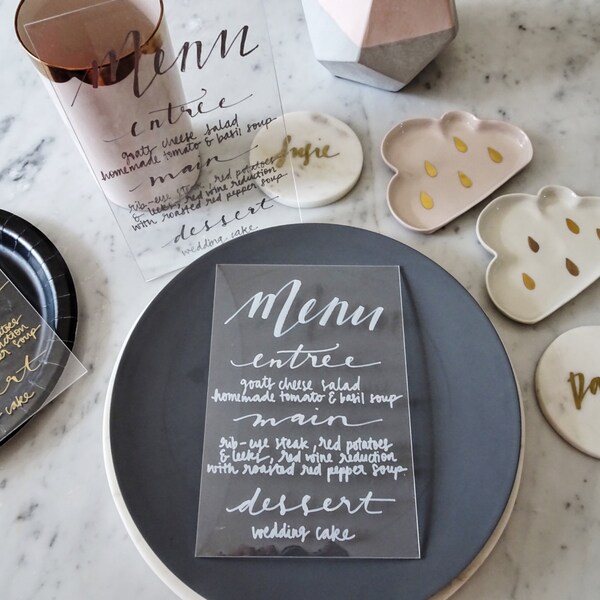 Menu
entrée
goats cheese salad
homemade tomato & basil soup
main
rib-eye steak, red potatoes
& leeks, red wine reduction
with roasted red pepper soup
dessert
wedding cake
Susie
Menu
entree
goats cheese salad
homemade tomato & basil soup
main
rib-eye steak, red potatoes
& leeks, red wine reduction
with roasted red pepper soup
dessert
wedding cake